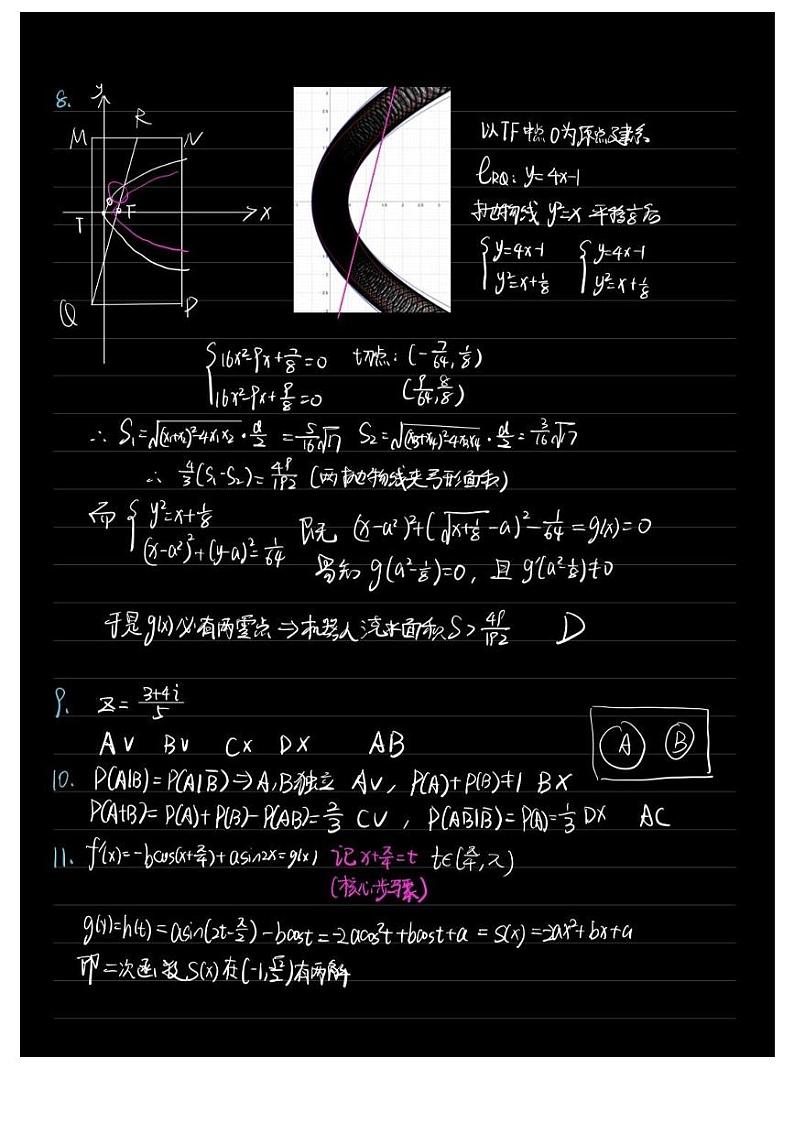 8.
y
M R N
O F
T x
Q P
以TF中点O为原点建系
l_RQ: y=4x-1
抛物线 y²=x 平移后
{y=4x-1 {y=4x-1
{y²=x+1/8 {y²=x+1/8
{16x²-9x+7/8=0 切点: (-7/64, 1/8)
{16x²-9x+9/8=0 (9/64, 8/8)
∴ S₁=√(x₁+x₂)²-4x₁x₂ · d/2 = 5/16√17 S₂=√(x₃+x₄)²-4x₃x₄ · d/2 = 3/16√17
∴ 4/3(S₁-S₂)=49/192 (两抛物线夹弓形面积)
而 {y²=x+1/8
{(x-a²)²+(y-a)²=1/64
(x-a²)²+(√x+1/8-a)²-1/64=g(x)=0
易知 g(a²-1/8)=0, 且 g'(a²-1/8)≠0
于是g(x)必有两零点⇒机器人 面积S>49/192 D
9. z= 3+4i/5
A∨ B∨ C× D× AB
A B
10. P(A|B)=P(A|B̄)⇒A,B独立 A∨, P(A)+P(B)≠1 B×
P(A+B)=P(A)+P(B)-P(AB)=2/3 C∨, P(AB̄|B̄)=P(A)=1/3 D× AC
11. f'(x)=-bcos(x+π/4)+asin2x=g(x) 记x+π/4=t t∈(π/4,π)
(核心步骤)
g(x)=h(t)=asin(2t-π/2)-bcost=-2acos²t+bcost+a=s(x)=-2ax²+bx+a
即二次函数S(x)在(-1,√2/2)有两解